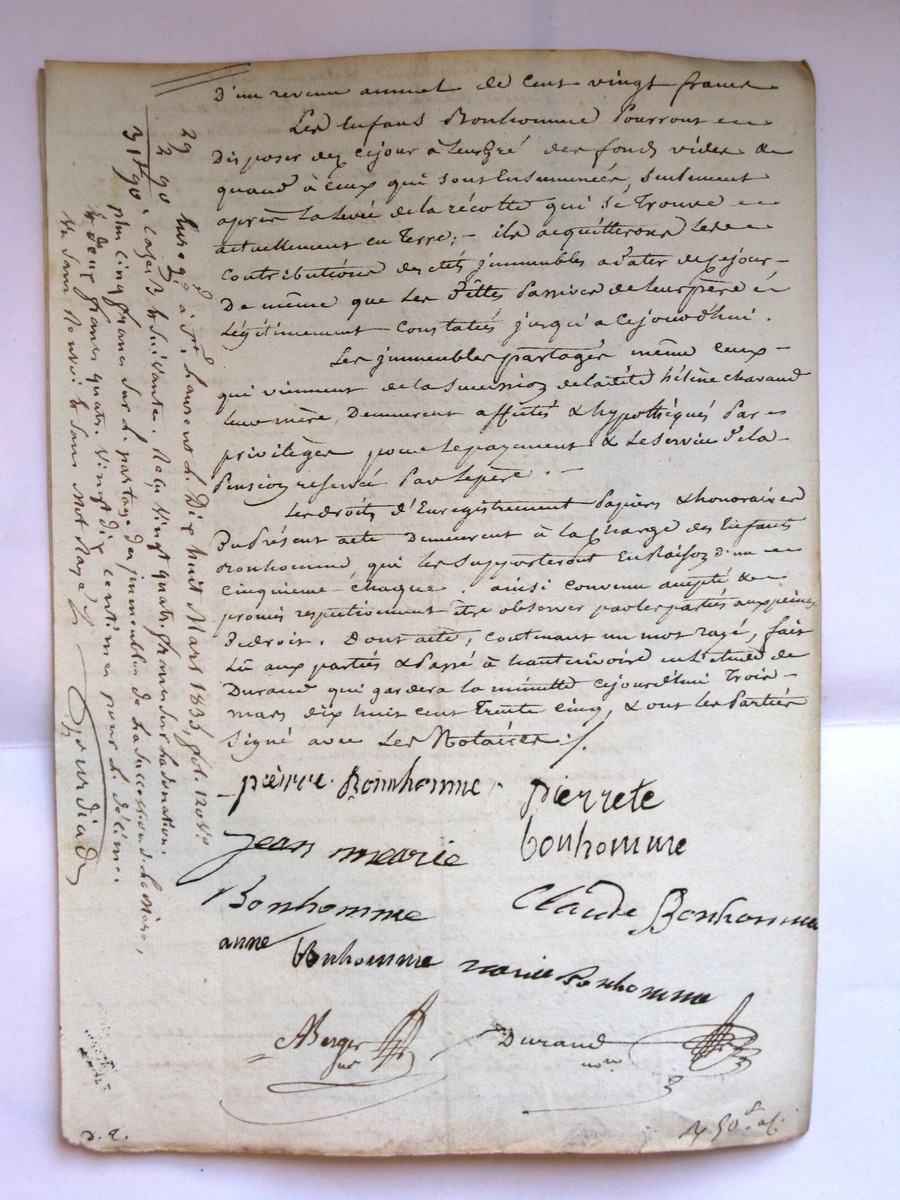 D'un revenu annuel de cent vingt francs
Les Enfans Bonhomme Pourront
Disposer dez cejour à leur gré des fonds vides &
quand à Ceux qui sont Ensemencés, seulement
après La Levée de la récolte qui se Trouve
actuellement en Terre; ils acquitterons Les
Contributions desdits jmmeubles adater de cejour
De même que Les Dettes Passives de leur père
Légitimement Constatés jusqu'à cejourd'hui.
Les jmmeubles partagés même Ceux
qui viennent de la Succession de ladite hélène chavand
leur mère, Demeurent affectés & hypothèqués Par
privilège pour le payement & le Service de la
Pension reservée Par Le père.
Les droits d'Enregistrement Papiers & honoraires
Du Présent acte Demeurent à la Charge des Enfants
Bonhomme, qui les Supporteront En Raison d'un
cinquieme chaque. ainsi convenu accepté &
promis respectivement être observer par les parties aux peines
De droit. Dont acte, contenant un mot rayé, fait
Lû aux parties & Passé à hauterivoire en L'étude de
Durand qui gardera la minutte cejourd'hui Trois
mars dix huit cent Trente Cinq, & ont les Parties
Signé avec Les Notaires ./.
pierre Bonhomme
pierrete
bonhomme
jean marie
Bonhomme
Claude Bonhomme
anne bonhomme
marie Bonhomme
ABerger
Durand
nore
29
2 90
31 f 90
Enregé à St Laurent Le Dix huit Mars 1835, fol. 120 Vo
cases 3 & Suivantes. Reçu Vingt quatre francs sur la donation.
plus Cinq francs Sur Le partage des jmmeubles de la succession de la Mère,
& Deux francs quatre Vingt dix centimes pour Le décime.
& Sans Renvoi & Sans Mot Rayé